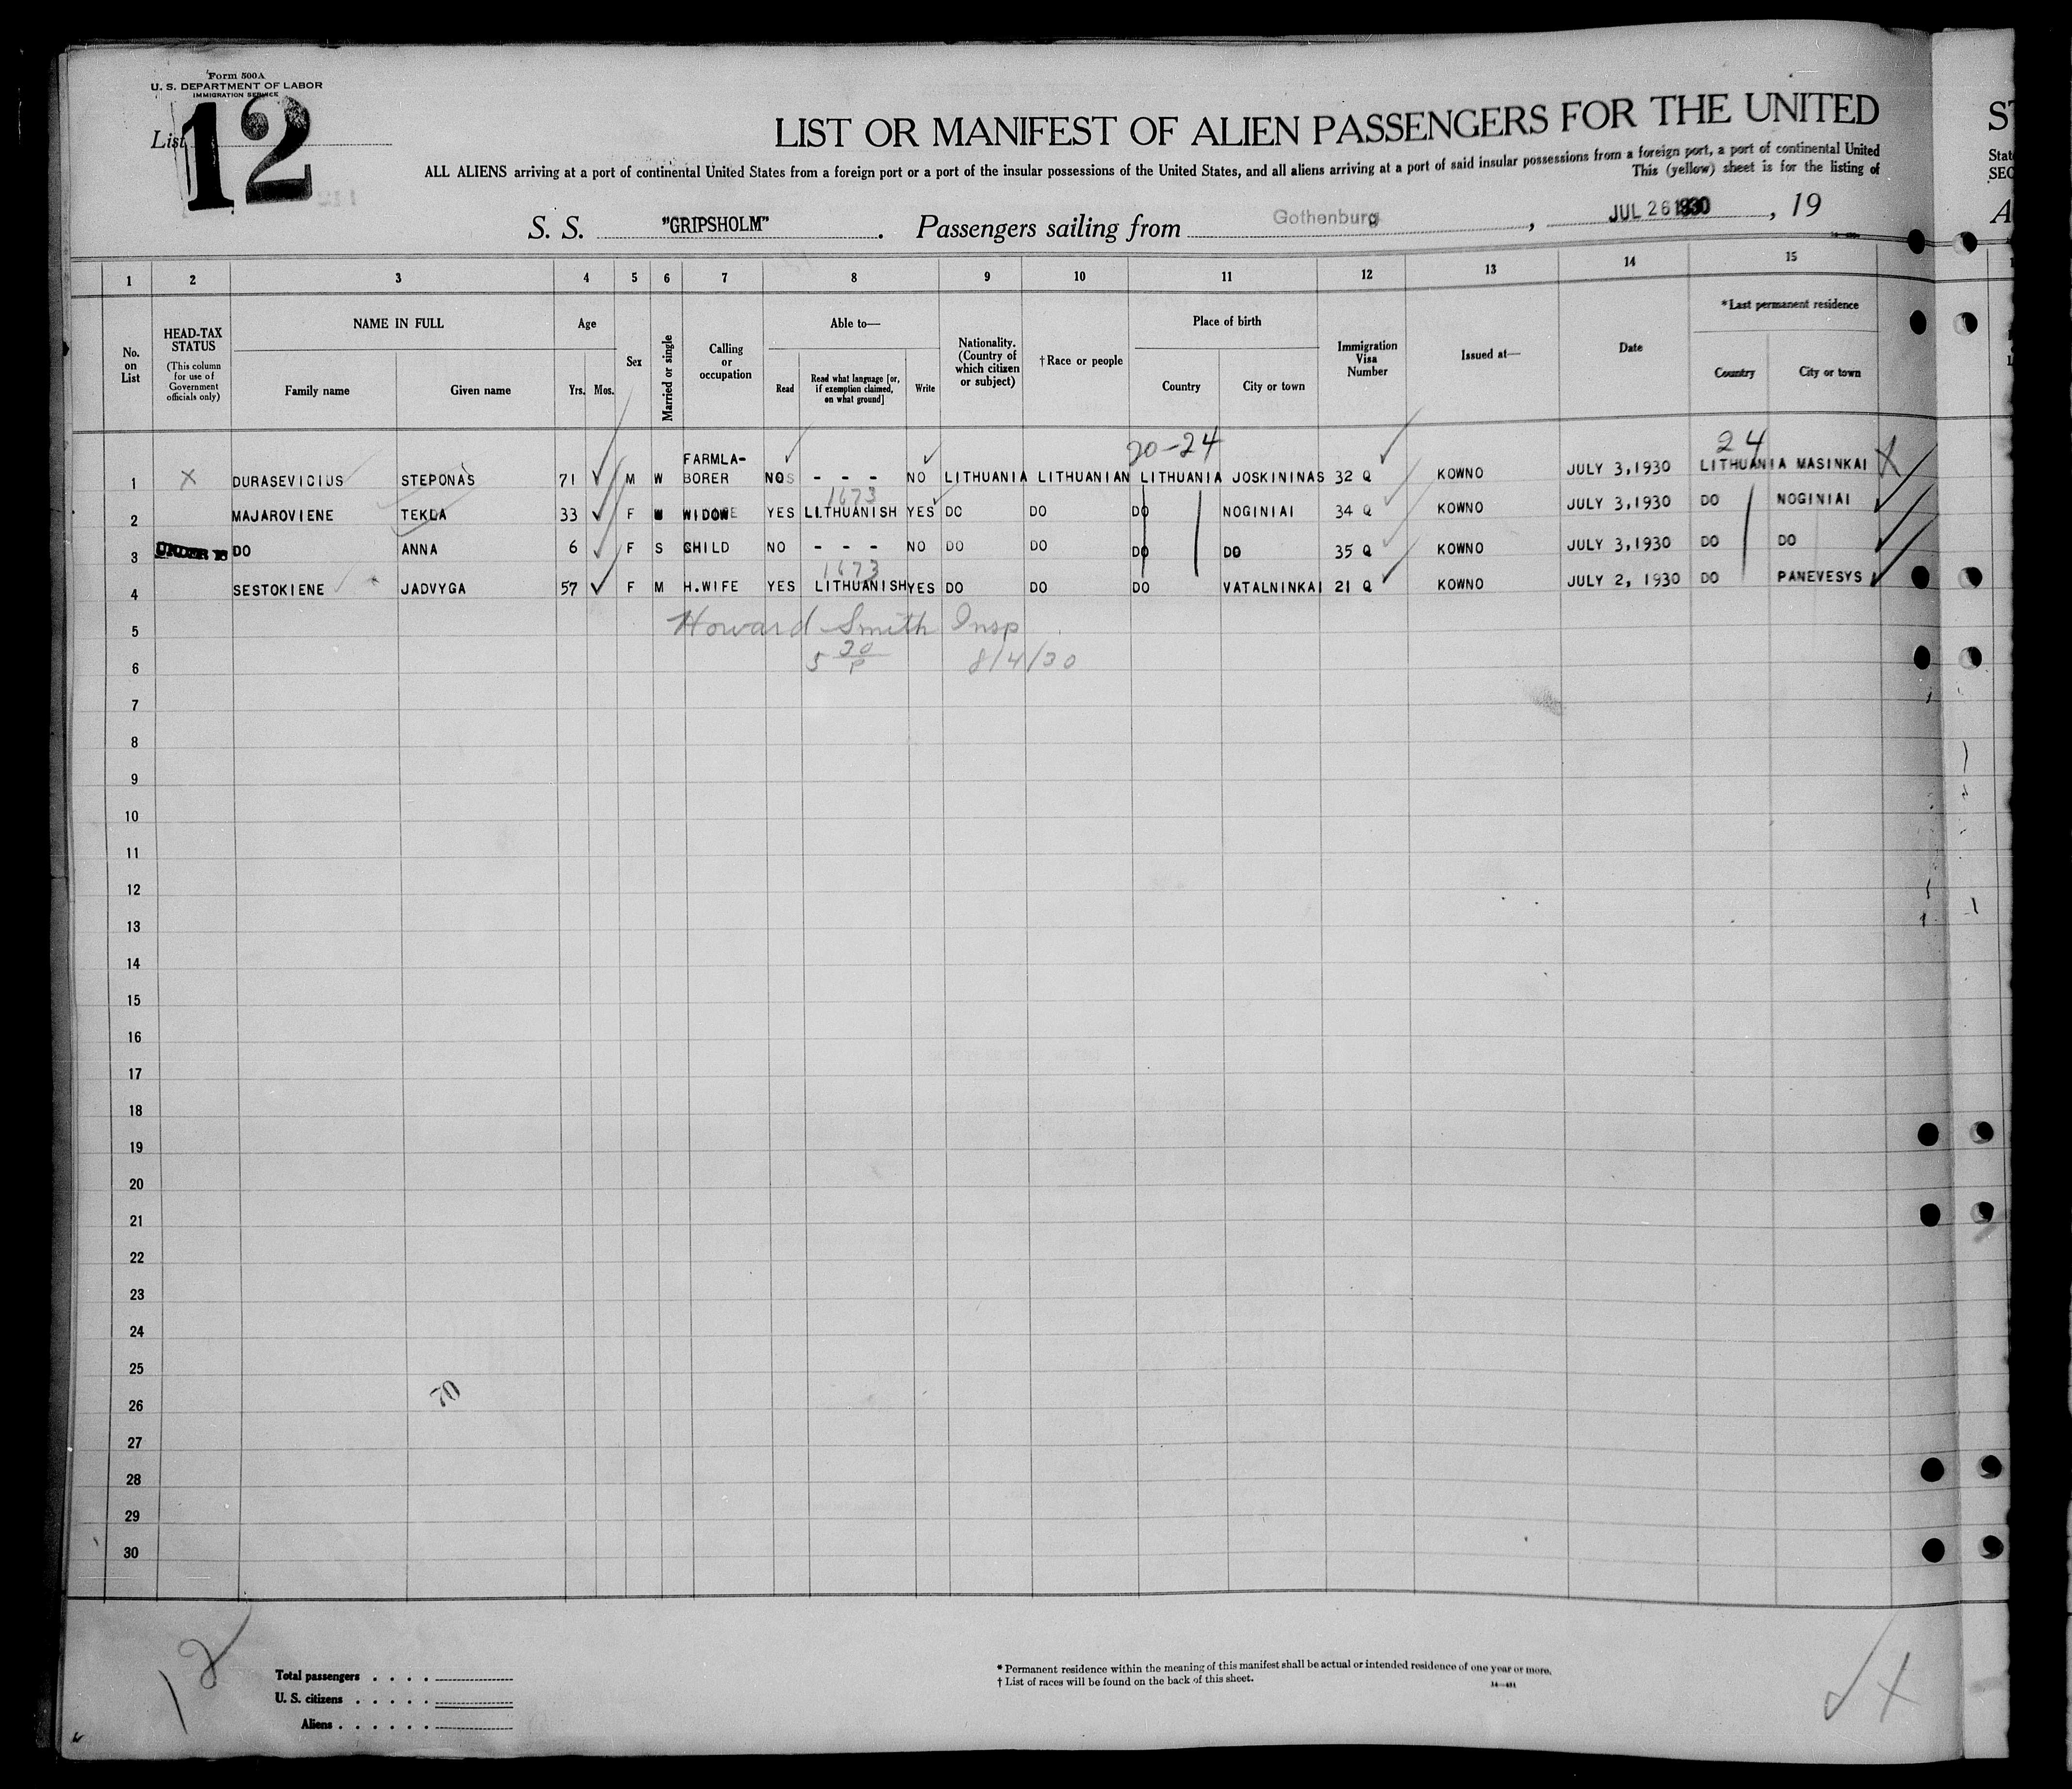 Form 500A
U. S. DEPARTMENT OF LABOR
IMMIGRATION SERVICE
List 12
LIST OR MANIFEST OF ALIEN PASSENGERS FOR THE UNITED
ST
ALL ALIENS arriving at a port of continental United States from a foreign port or a port of the insular possessions of the United States, and all aliens arriving at a port of said insular possessions from a foreign port, a port of continental United
Stat
This (yellow) sheet is for the listing of
SEC
S. S. "GRIPSHOLM". Passengers sailing from Gothenburg, JUL 26 1930, 19
A
1 2 3 4 5 6 7 8 9 10 11 12 13 14 15
No. on List
HEAD-TAX STATUS
(This column for use of Government officials only)
NAME IN FULL
Family name Given name
Age
Yrs. Mos.
Sex
Married or single
Calling or occupation
Able to—
Read
Read what language [or, if exemption claimed, on what ground]
Write
Nationality. (Country of which citizen or subject)
†Race or people
Place of birth
Country City or town
Immigration Visa Number
Issued at—
Date
*Last permanent residence
Country City or town
20-24 24
1 X DURASEVICIUS STEPONAS 71 M W FARMLA-BORER NO - - - NO LITHUANIA LITHUANIAN LITHUANIA JOSKININAS 32 Q KOWNO JULY 3,1930 LITHUANIA MASINKAI X
1673
2 MAJAROVIENE TEKLA 33 F W WIDOW YES LITHUANISH YES DO DO DO NOGINIAI 34 Q KOWNO JULY 3,1930 DO NOGINIAI
3 UNDER 16 DO ANNA 6 F S CHILD NO - - - NO DO DO DO DO 35 Q KOWNO JULY 3,1930 DO DO
1673
4 SESTOKIENE JADVYGA 57 F M H.WIFE YES LITHUANISH YES DO DO DO VATALNINKAI 21 Q KOWNO JULY 2, 1930 DO PANEVESYS
5 Howard Smith Insp
6 5 30 P 8/4/30
7
8
9
10
11
12
13
14
15
16
17
18
19
20
21
22
23
24
25
26 70
27
28
29
30
12
Total passengers . . . .
U. S. citizens . . . . .
Aliens . . . . . .
* Permanent residence within the meaning of this manifest shall be actual or intended residence of one year or more.
† List of races will be found on the back of this sheet.